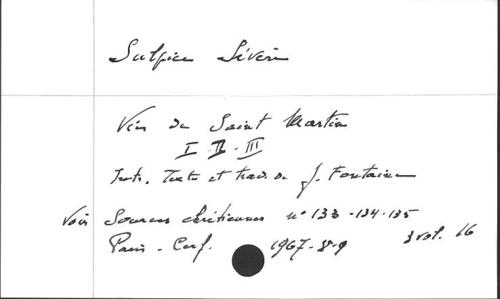 Sulpice Sévère
Vie de Saint Martin
I - II - III
Intr. Texte et trad. de J. Fontaine
Voir Sources chrétiennes n° 133 - 134 - 135
Paris - Cerf. 1967-8-9 3 vol. 16